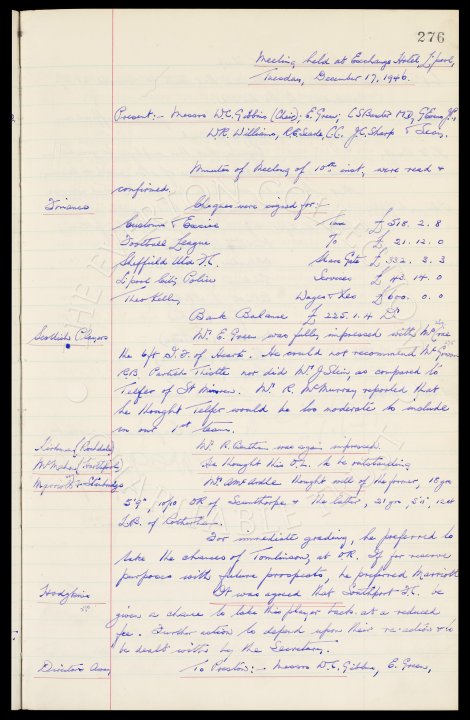 276
Meeting held at Exchange Hotel, L'pool,
Tuesday, December 17, 1946.
Present:- Messrs W.C. Gibbins (Chair), E. Green, C.S. Baxter M.B., G. Evans J.P.,
W.R. Williams, R.E. Searle, C.C. J.C. Sharp & Secy.
Minutes of Meeting of 10th inst, were read &
confirmed.
Finance Cheques were signed for:-
Customs & Excise Tax £ 518. 2. 8
Football League To £ 21. 12. 0
Sheffield Utd F.C. Share Gate £ 332. 3. 3
L'pool City Police Services £ 43. 14. 0
Theo Kelly Wages & Xes £ 600. 0. 0
Bank Balance £ 225. 1. 4 Dr
Scottish Players Mr. E. Green was fully impressed with
the 6ft of Hearts. He could not recommend
R.B. Partick Thistle nor did Mr J. Stein as compared to
Telfer of St Mirren. Mr. R. McMurray reported that
he thought Telfer would be too moderate to include
in our 1st team.
Kirkman (Rochdale) Mr. R. was again impressed.
(Southport) He thought this to be outstanding
Stockbridge Mr. thought well of the former, 18 yrs
5'9", 10/10, OR of Scunthorpe & the latter, 21 yrs, 5'11", 12 st
of Rotherham.
For immediate grading, he preferred to
take the chances of Tomlinson, at OR. If for reserve
purposes with future prospects, he preferred Marriott
Hodgkins It was agreed that Southport F.C. be
given a chance to take this player back at a reduced
fee. Further action to depend upon their re-action & to
be dealt with by the Secretary.
Directors Away To Preston:- Messrs W.C. Gibbins, E. Green,